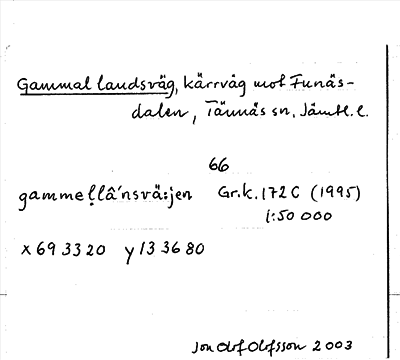 Gammal landsväg, kärrväg mot Funäs-
dalen, Tännäs sn, Jämtl. l.
66
gammeḷḷâ´nsvä:jen Gr.k. 172 C (1995)
1:50 000
x 69 33 20 y 13 36 80
Jon Olof Olofsson 2003